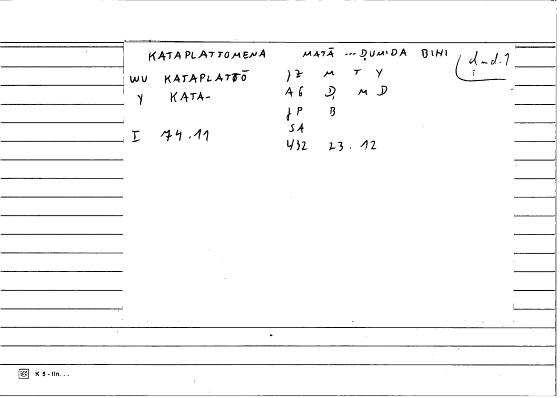 KATAPLATTOMENA MATĀ --- ḌUMIDA BIHI d-d.1
WU KATAPLATTŌ JZ M T Y
Y KATA- AG Ḍ M D
JP B
SA
I 74.11 432 23.12
K 5 - lin. . .